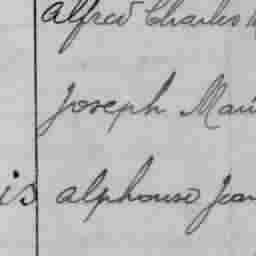 Alfred Charles
Joseph
is Alphonse Jean